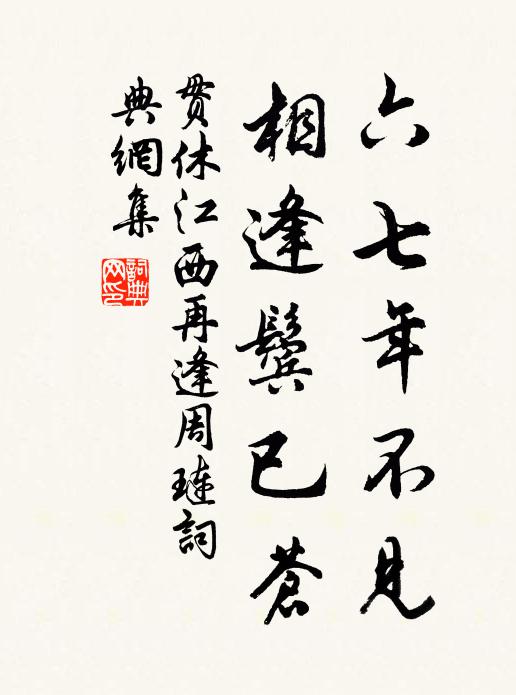 六七年不見
相逢鬓已蒼
贯休江西再逢周琏詞
典網集
詞典
网印